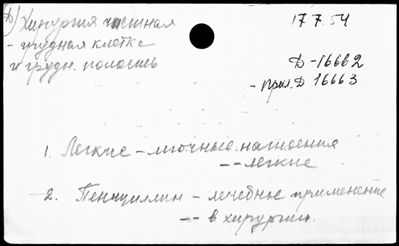 Д) Хирургия частная
- грудная клетка
и грудн. полость
17 7. 54
Д-16662
- прил. Д 16663
1. Легкие - легочные нагноения
-- легкие
2. Пенициллин - лечебные применение
-- в хирургии.